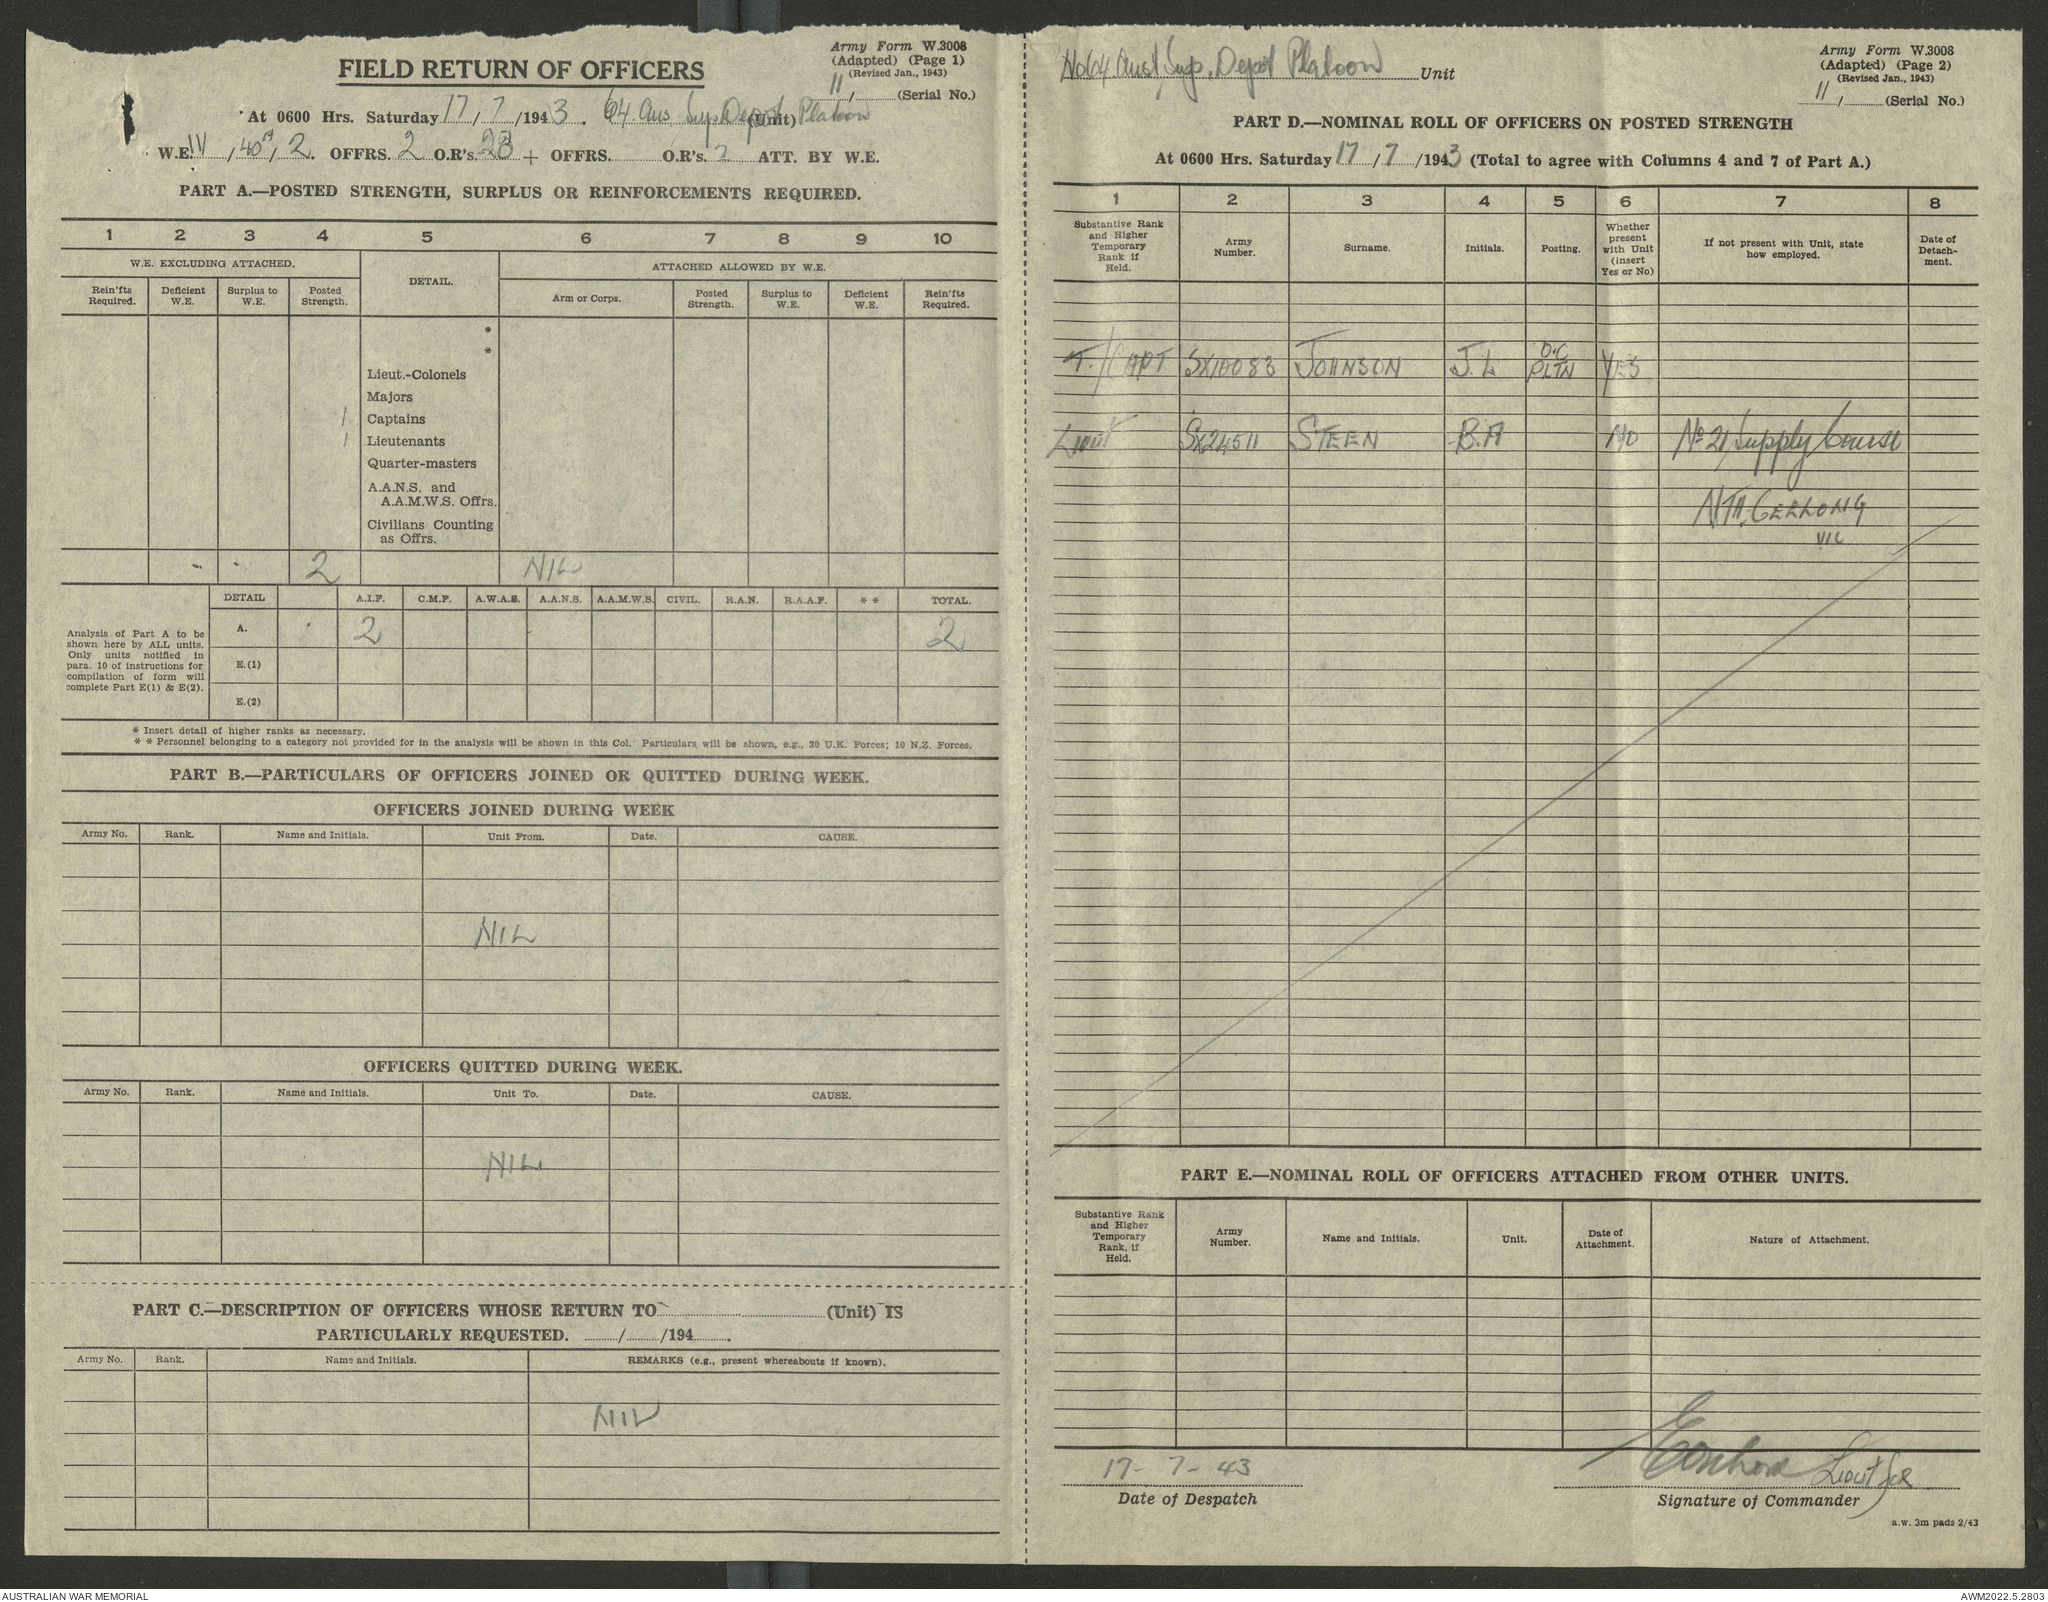 Army Form W.3008
(Adapted) (Page 1)
(Revised Jan., 1943)
11/ (Serial No.)
FIELD RETURN OF OFFICERS
At 0600 Hrs. Saturday 17/7/1943. 64 Aus Sup Depot (Unit) Platoon
W.E. , 2. OFFRS. 2 O.R's. 23 + OFFRS. O.R's. 2 ATT. BY W.E.
PART A.—POSTED STRENGTH, SURPLUS OR REINFORCEMENTS REQUIRED.
1 2 3 4 5 6 7 8 9 10
W.E. EXCLUDING ATTACHED. DETAIL. ATTACHED ALLOWED BY W.E.
Rein'fts Required. Deficient W.E. Surplus to W.E. Posted Strength. Arm or Corps. Posted Strength. Surplus to W.E. Deficient W.E. Rein'fts Required.
*
*
Lieut.-Colonels
Majors
1 Captains
1 Lieutenants
Quarter-masters
A.A.N.S. and
A.A.M.W.S. Offrs.
Civilians Counting
as Offrs.
- - 2 NIL
DETAIL A.I.F. C.M.F. A.W.A.S. A.A.N.S. A.A.M.W.S. CIVIL. R.A.N. R.A.A.F. * * TOTAL.
Analysis of Part A to be
shown here by ALL units.
Only units notified in
para. 10 of instructions for
compilation of form will
complete Part E(1) & E(2).
A. 2 2
E.(1)
E.(2)
* Insert detail of higher ranks as necessary.
* * Personnel belonging to a category not provided for in the analysis will be shown in this Col. Particulars will be shown, e.g., 20 U.K. Forces; 10 N.Z. Forces.
PART B.—PARTICULARS OF OFFICERS JOINED OR QUITTED DURING WEEK.
OFFICERS JOINED DURING WEEK
Army No. Rank. Name and Initials. Unit From. Date. CAUSE.
NIL
OFFICERS QUITTED DURING WEEK.
Army No. Rank. Name and Initials. Unit To. Date. CAUSE.
NIL
PART C.—DESCRIPTION OF OFFICERS WHOSE RETURN TO (Unit) IS
PARTICULARLY REQUESTED. / /194 .
Army No. Rank. Name and Initials. REMARKS (e.g., present whereabouts if known).
NIL
No 64 Aust Sup. Depot Platoon Unit
Army Form W.3008
(Adapted) (Page 2)
(Revised Jan., 1943)
11/ (Serial No.)
PART D.—NOMINAL ROLL OF OFFICERS ON POSTED STRENGTH
At 0600 Hrs. Saturday 17/7/1943 (Total to agree with Columns 4 and 7 of Part A.)
1 2 3 4 5 6 7 8
Substantive Rank and Higher Temporary Rank if Held. Army Number. Surname. Initials. Posting. Whether present with Unit (insert Yes or No) If not present with Unit, state how employed. Date of Detach-ment.
T./CAPT SX10083 JOHNSON J.L O.C PLTN YES
Lieut SX24511 STEEN B.A NO No 21 Supply Course
NTH. GEELONG
VIC
PART E.—NOMINAL ROLL OF OFFICERS ATTACHED FROM OTHER UNITS.
Substantive Rank and Higher Temporary Rank, if Held. Army Number. Name and Initials. Unit. Date of Attachment. Nature of Attachment.
17-7-43 Lieut for
Date of Despatch Signature of Commander
a.w. 3m pads 2/43
AUSTRALIAN WAR MEMORIAL AWM2022.5.2803